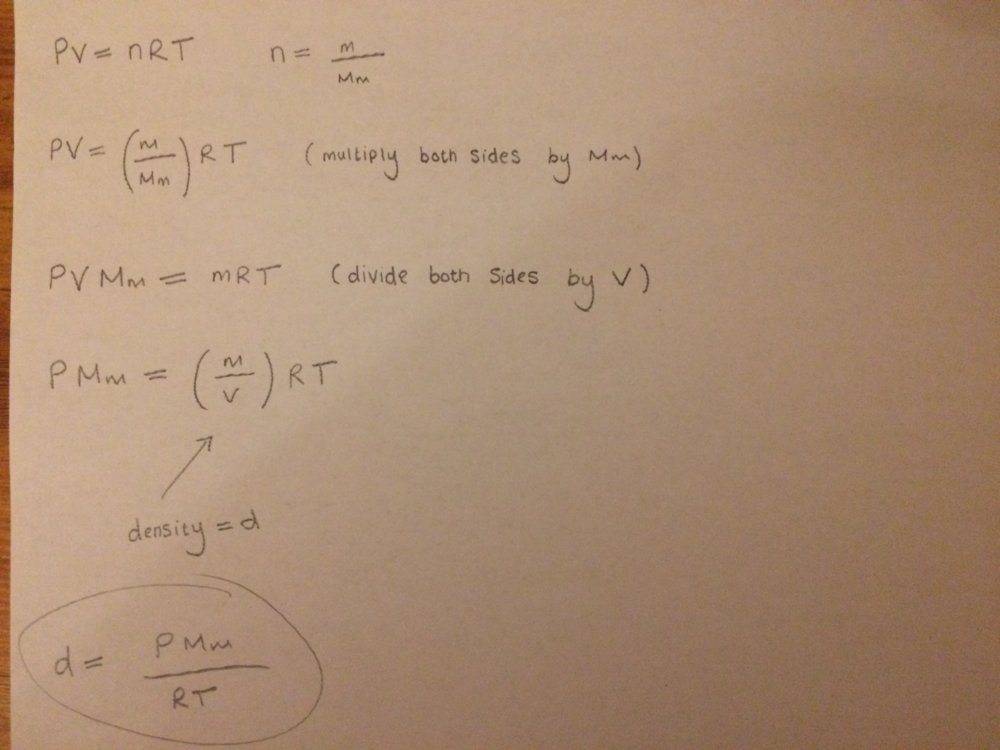 PV = nRT n = m/Mm
PV = (m/Mm) RT (multiply both sides by Mm)
PVMm = mRT (divide both sides by V)
PMm = (m/V) RT
density = d
d = PMm/RT